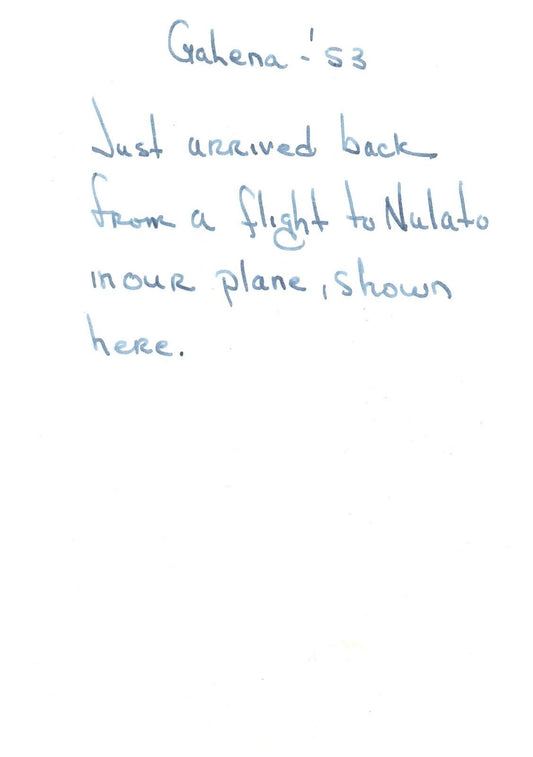 Gahena - '53
Just arrived back
from a flight to Nulato
in our plane, shown
here.